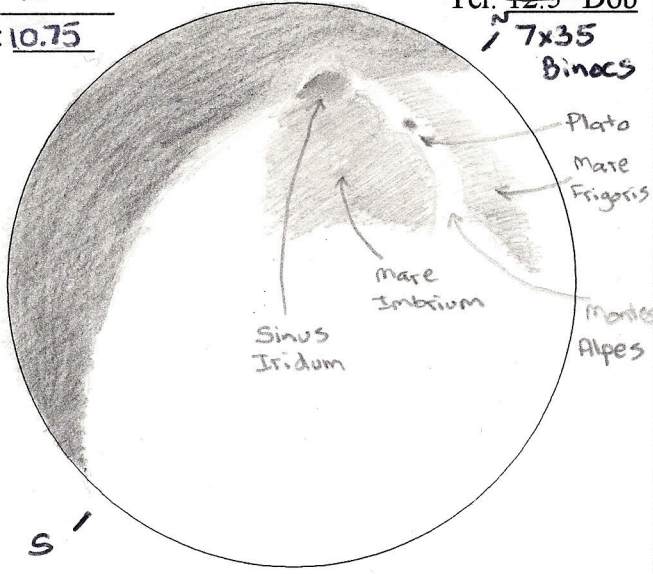 10.75
Tel. 12.5" Dob
N
7x35
Binocs
Plato
Mare
Frigoris
Mare
Imbrium
Montes
Alpes
Sinus
Iridum
S